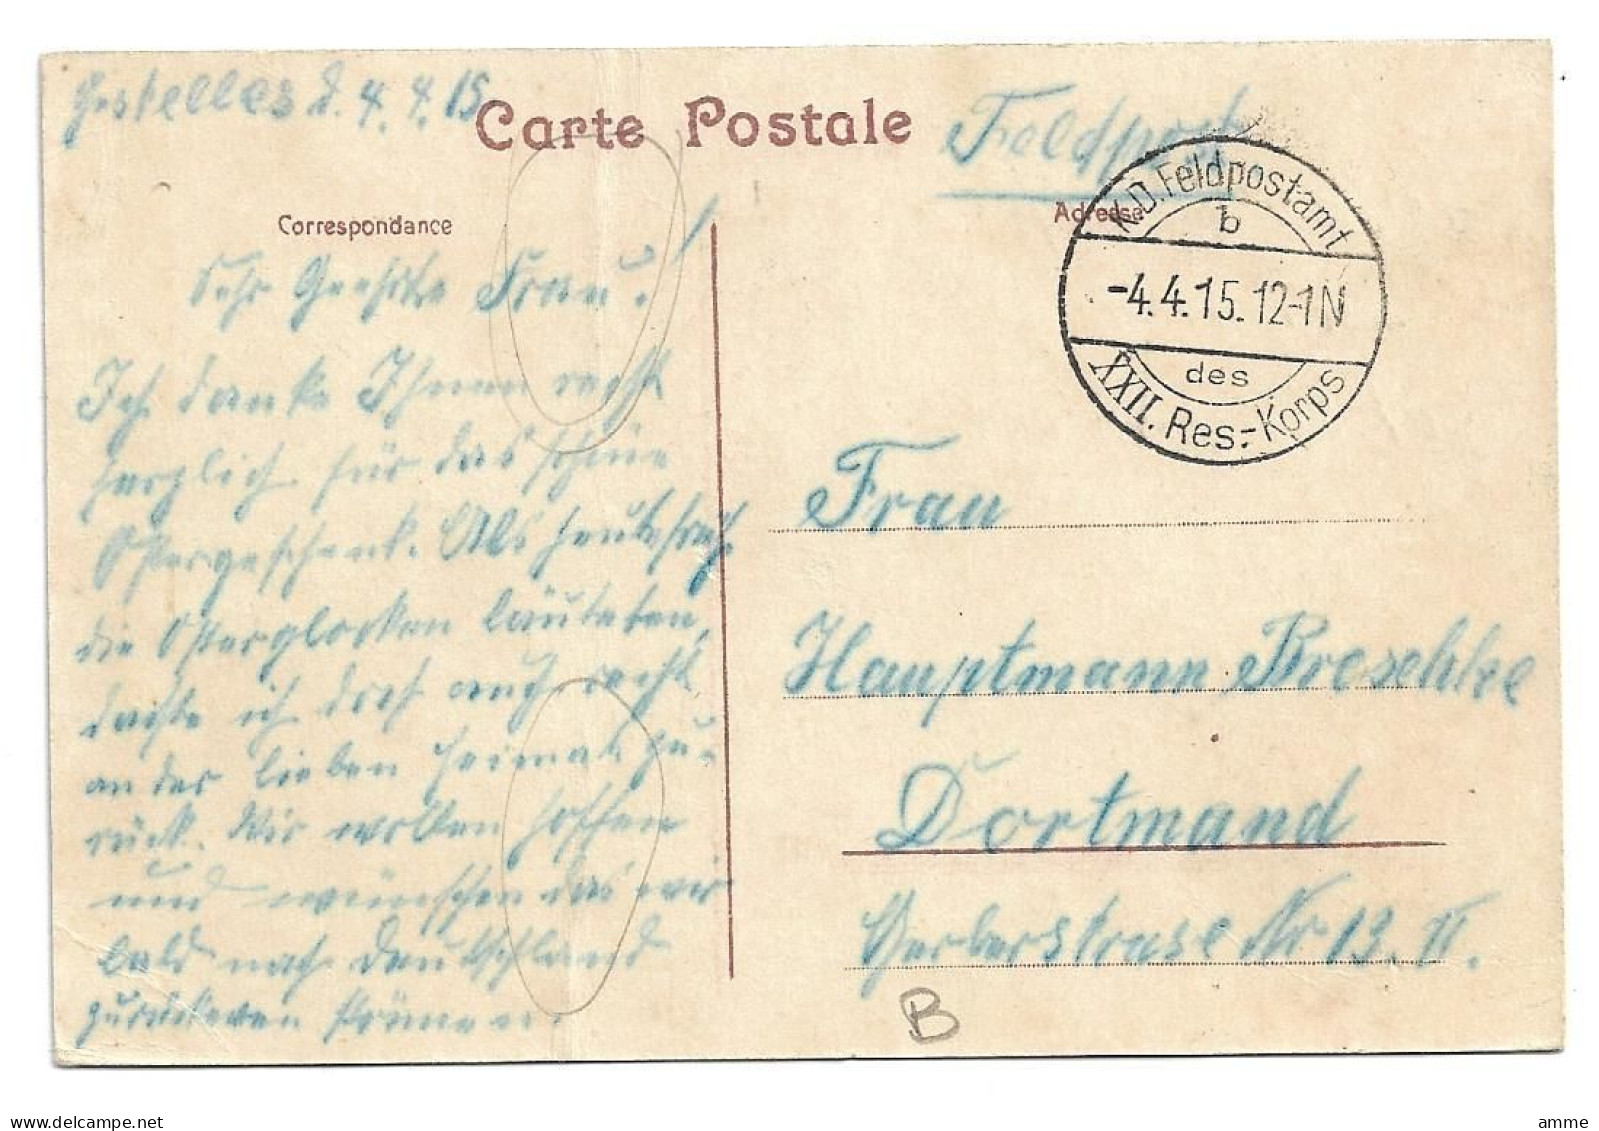 Gestelles d. 4. 4. 15
Carte Postale
Feldpost
Correspondance
Adresse
K.D. Feldpostamt
b
-4.4.15. 12-1 N
des
XXII. Res.-Korps
Sehr Geehrte Frau!
Ich danke Ihnen recht
herzlich für das schöne
Ostergeschenk. Als heute früh
die Osterglocken läuteten,
dachte ich doch auch recht
an der lieben Heimat zu-
rück. Wir wollen hoffen
und wünschen das wir
bald nach Deutschland
zurükkeren können.
Frau
Hauptmann Breschke
Dortmund
Gerberstrase Nr 13. II.
B
amme